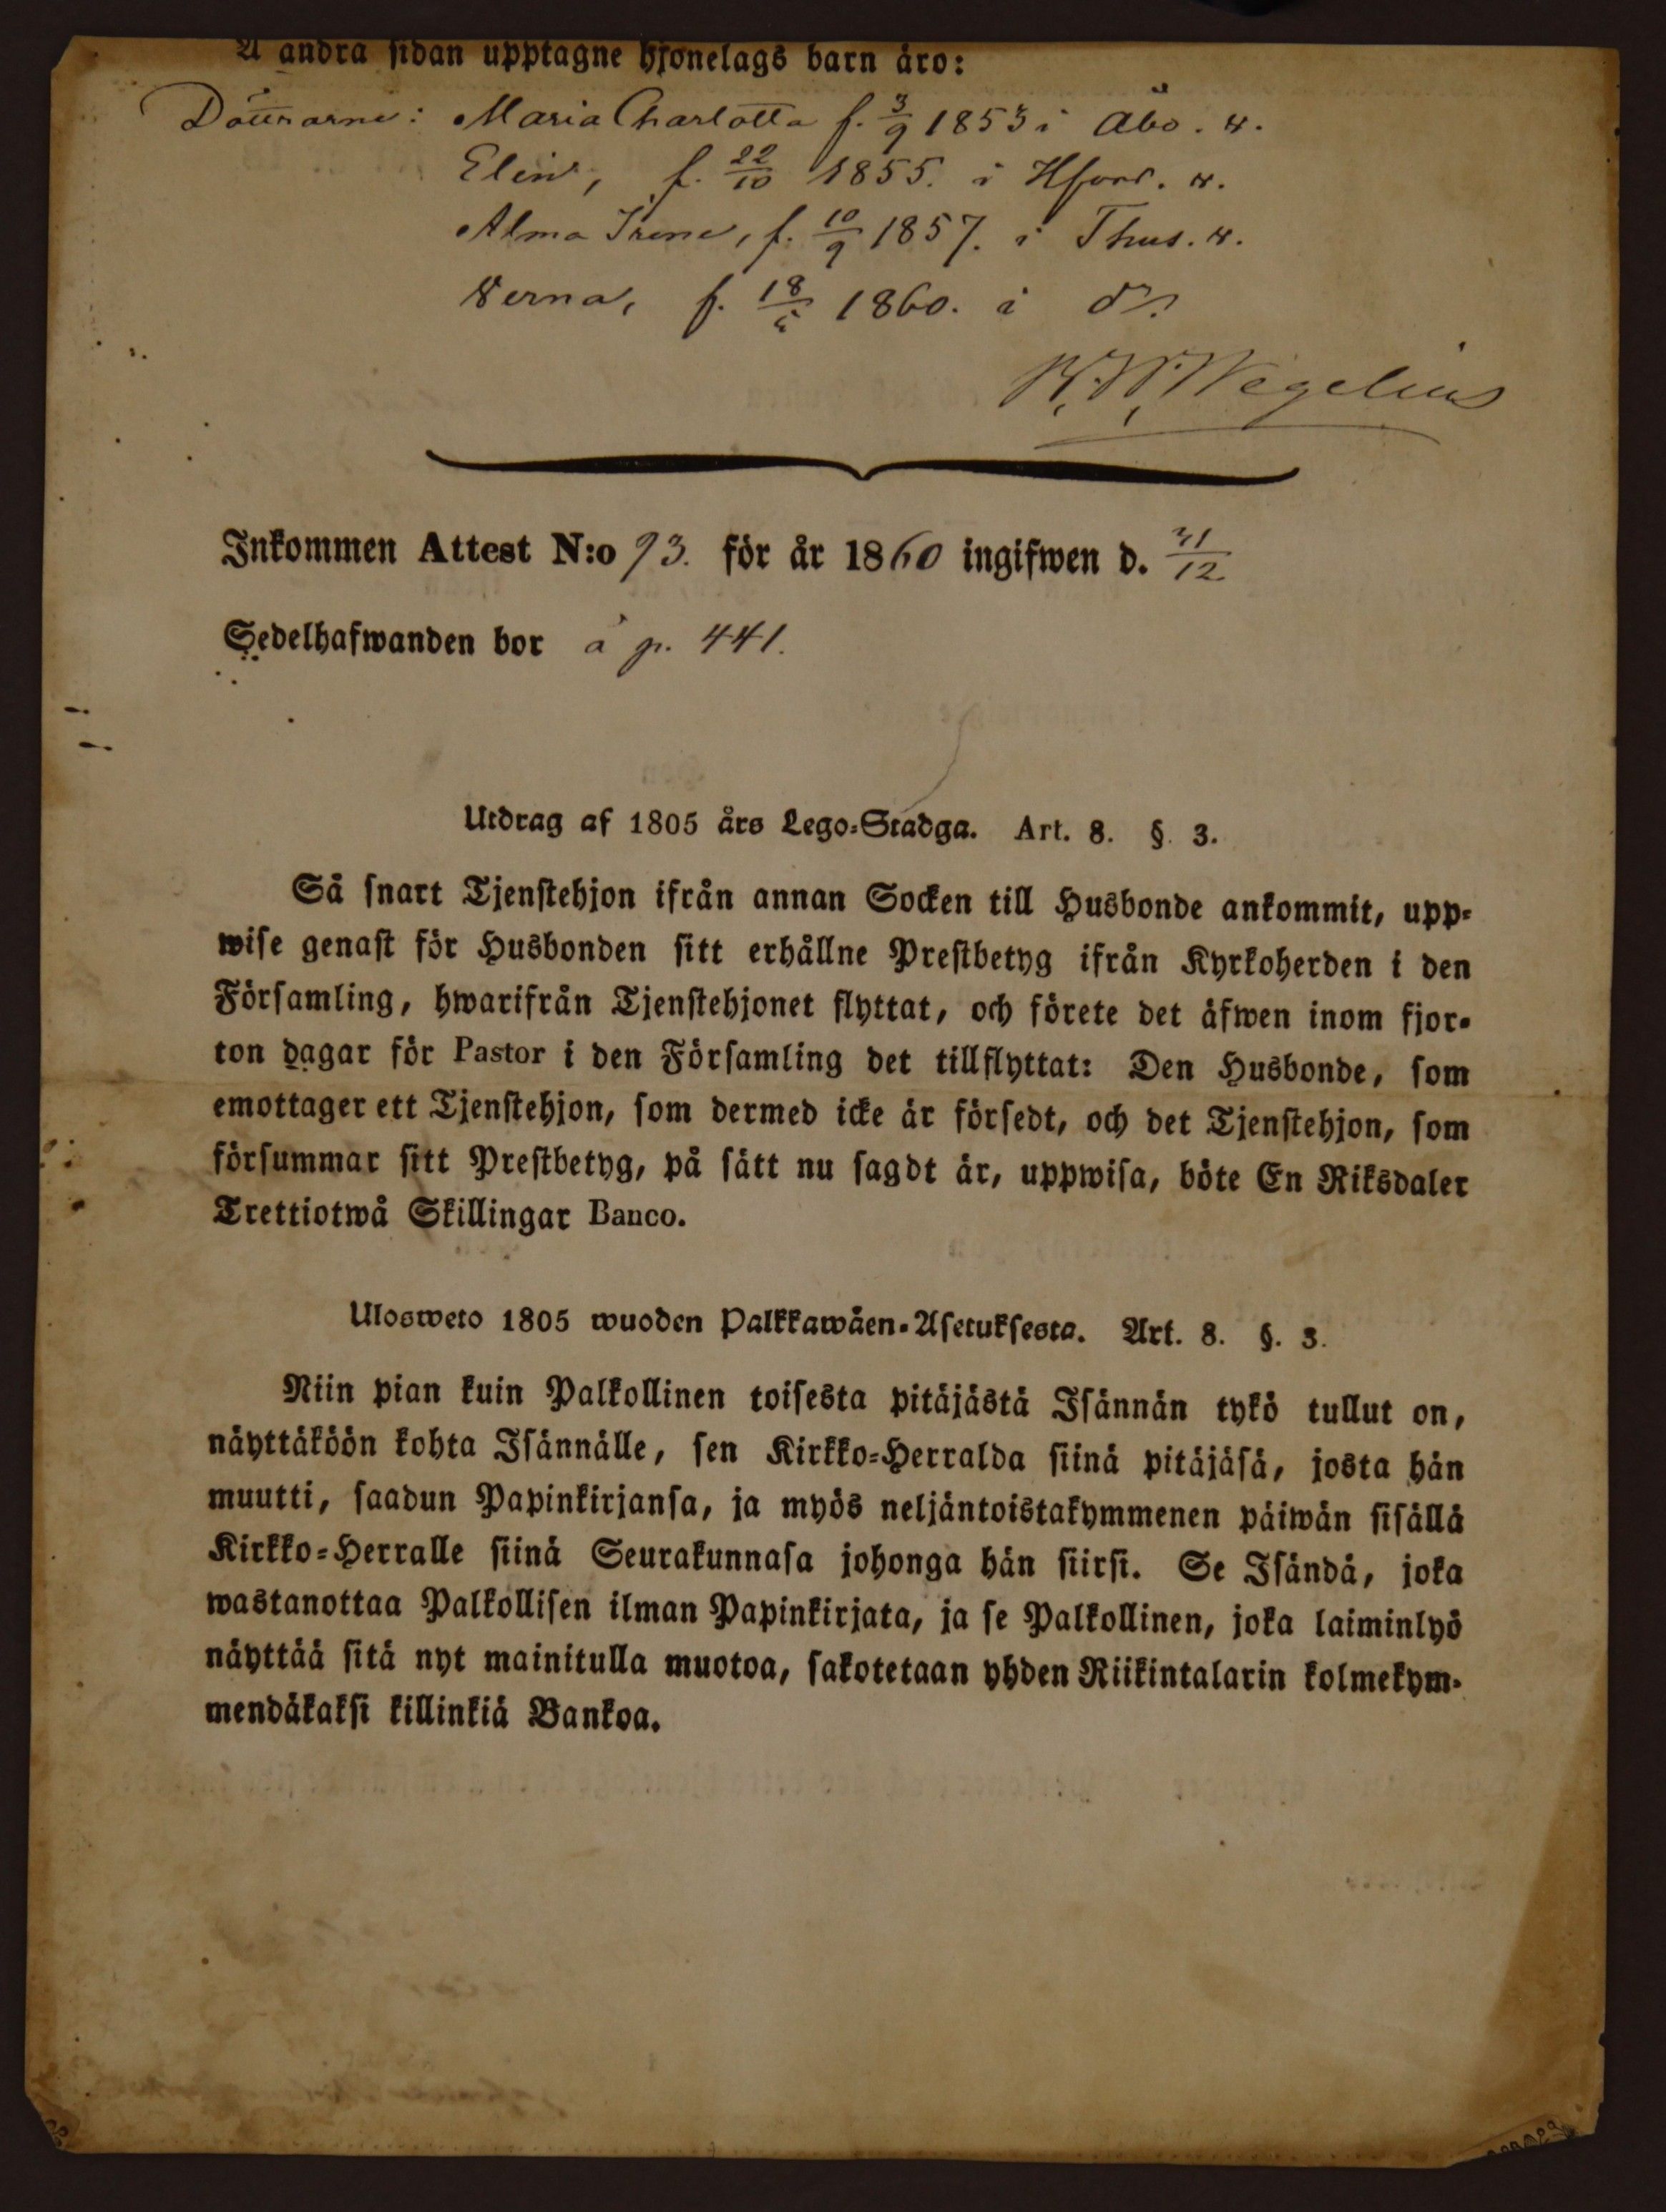 Å andra sidan upptagne hjonelags barn äro:
Döttrarne: Maria Charlotta f. 3/9 1853 i Åbo. v.
Elin, f. 22/10 1855. i Hfors. v.
Alma Irene, f. 10/9 1857. i Thus. v.
Verna, f. 18/5 1860. i do.
Wegelius
Inkommen Attest N:o 93. för år 1860 ingifwen d. 31/12
Sedelhafwanden bor å p. 441.
Utdrag af 1805 års Lego-Stadga. Art. 8. §. 3.
Så snart Tjenstehjon ifrån annan Socken till Husbonde ankommit, upp-
wise genast för Husbonden sitt erhållne Prestbetyg ifrån Kyrkoherden i den
Församling, hwarifrån Tjenstehjonet flyttat, och förete det äfwen inom fjor-
ton dagar för Pastor i den Församling det tillflyttat: Den Husbonde, som
emottager ett Tjenstehjon, som dermed icke är försedt, och det Tjenstehjon, som
försummar sitt Prestbetyg, på sätt nu sagdt är, uppwisa, böte En Riksdaler
Trettiotwå Skillingar Banco.
Ulosweto 1805 wuoden Palkkawäen-Asetuksesta. Art. 8. §. 3.
Niin pian kuin Palkollinen toisesta pitäjästä Isännän tykö tullut on,
näyttäköön kohta Isännälle, sen Kirkko-Herralda siinä pitäjäsä, josta hän
muutti, saadun Papinkirjansa, ja myös neljäntoistakymmenen päiwän sisällä
Kirkko-Herralle siinä Seurakunnasa johonga hän siirsi. Se Isändä, joka
wastanottaa Palkollisen ilman Papinkirjata, ja se Palkollinen, joka laiminlyö
näyttää sitä nyt mainitulla muotoa, sakotetaan yhden Riikintalarin kolmekym-
mendäkaksi killinkiä Bankoa.